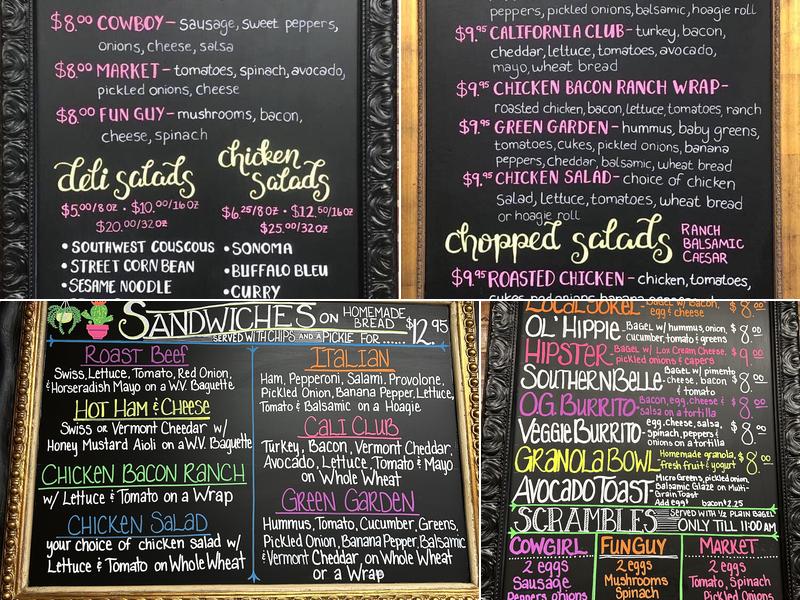 $8.00 COWBOY - sausage, sweet peppers,
onions, cheese, salsa
$8.00 MARKET - tomatoes, spinach, avocado,
pickled onions, cheese
$8.00 FUN GUY - mushrooms, bacon,
cheese, spinach
deli salads
$5.00/8 OZ • $10.00/16 OZ
$20.00/32 OZ
• SOUTHWEST COUSCOUS
• STREET CORN BEAN
• SESAME NOODLE
chicken
salads
$6.25/8 OZ • $12.50/16 OZ
$25.00/32 OZ
• SONOMA
• BUFFALO BLEU
• CURRY
peppers, pickled onions, balsamic, hoagie roll
$9.95 CALIFORNIA CLUB - turkey, bacon,
cheddar, lettuce, tomatoes, avocado,
mayo, wheat bread
$9.95 CHICKEN BACON RANCH WRAP -
roasted chicken, bacon, lettuce, tomatoes, ranch
$9.95 GREEN GARDEN - hummus, baby greens,
tomatoes, cukes, pickled onions, banana
peppers, cheddar, balsamic, wheat bread
$9.95 CHICKEN SALAD - choice of chicken
Salad, lettuce, tomatoes, wheat bread
or hoagie roll
chopped salads
RANCH
BALSAMIC
CAESAR
$9.95 ROASTED CHICKEN - chicken, tomatoes,
cukes, red onions, banana
SANDWICHES ON HOMEMADE BREAD $12.95
SERVED WITH CHIPS AND A PICKLE FOR......
ROAST BEEF
Swiss, Lettuce, Tomato, Red Onion,
& Horseradish Mayo on a W.V. Baguette
HOT HAM & CHEESE
Swiss OR Vermont Cheedar w/
Honey Mustard Aioli on a W.V. Baguette
CHICKEN BACON RANCH
w/ Lettuce & Tomato on a Wrap
CHICKEN SALAD
your choice of chicken salad w/
Lettuce & Tomato on Whole Wheat
ITALIAN
Ham, Pepperoni, Salami, Provolone,
Pickled Onion, Banana Pepper, Lettuce,
Tomato & Balsamic on a Hoagie
CALI CLUB
Turkey, Bacon, Vermont Cheddar,
Avocado, Lettuce, Tomato & Mayo
on Whole Wheat
GREEN GARDEN
Hummus, Tomato, Cucumber, Greens,
Pickled Onion, Banana Pepper, Balsamic
& Vermont Cheddar on Whole Wheat
or a Wrap
LOCAL YOKEL - Bagel w/ bacon, egg & cheese $8.00
OL' HIPPIE - Bagel w/ hummus, onion, cucumber, tomato & greens $8.00
HIPSTER - Bagel w/ Lox Cream Cheese, pickled onions & capers $9.00
SOUTHERN BELLE - Bagel w/ pimento cheese, bacon & tomato $8.00
O.G. BURRITO - Bacon, egg, cheese & salsa on a tortilla $8.00
VEGGIE BURRITO - egg, cheese, salsa, spinach, peppers & onions on a tortilla $8.00
GRANOLA BOWL Homemade granola, fresh fruit & yogurt $8.00
AVOCADO TOAST - Micro Greens, pickled onion, Balsamic Glaze on Multi-Grain Toast
Add egg $ bacon $2.25
SCRAMBLES SERVED WITH 1/2 PLAIN BAGEL
ONLY TILL 11:00 AM
COWGIRL
2 eggs
Sausage
Peppers, onions
FUN GUY
2 eggs
Mushrooms
Spinach
MARKET
2 eggs
Tomato, Spinach
Pickled Onions